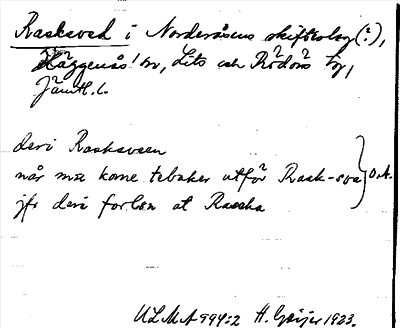 Rasksved i Norderåsens skifteslag (?),
Häggenås sn, Lits och Rödöns tg,
Jämtl. l.
deri Rasksveen
når man kome tebaker utför Rask-sve } O.A.
jfr deri forlsn at Rascha
ULMA 994:2 H. Geijer 1923.